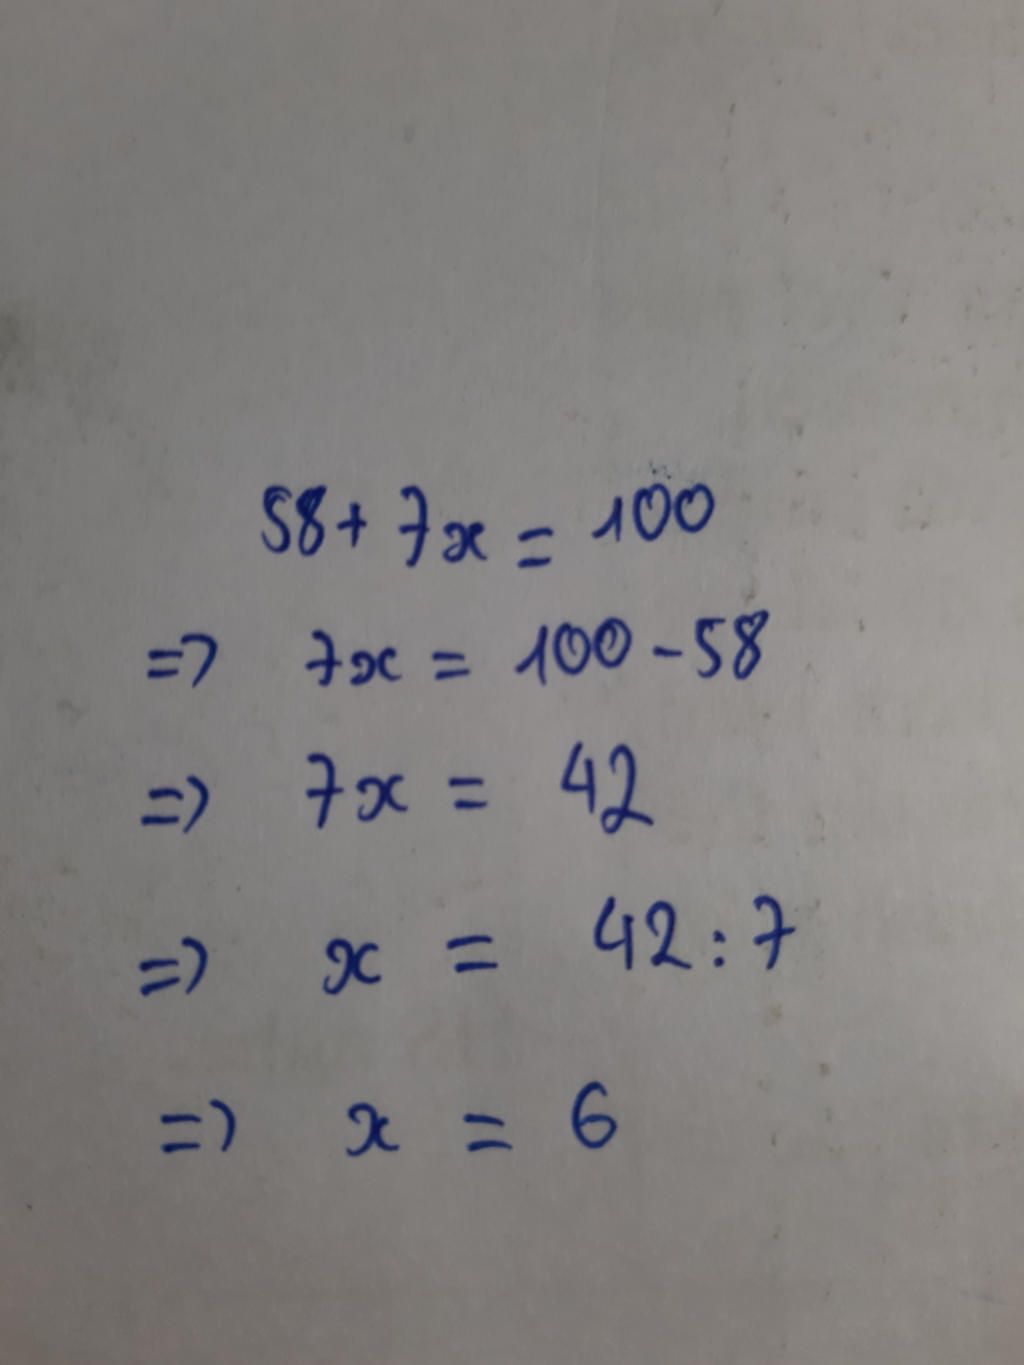 58 + 7x = 100
=> 7x = 100 - 58
=> 7x = 42
=> x = 42 : 7
=> x = 6